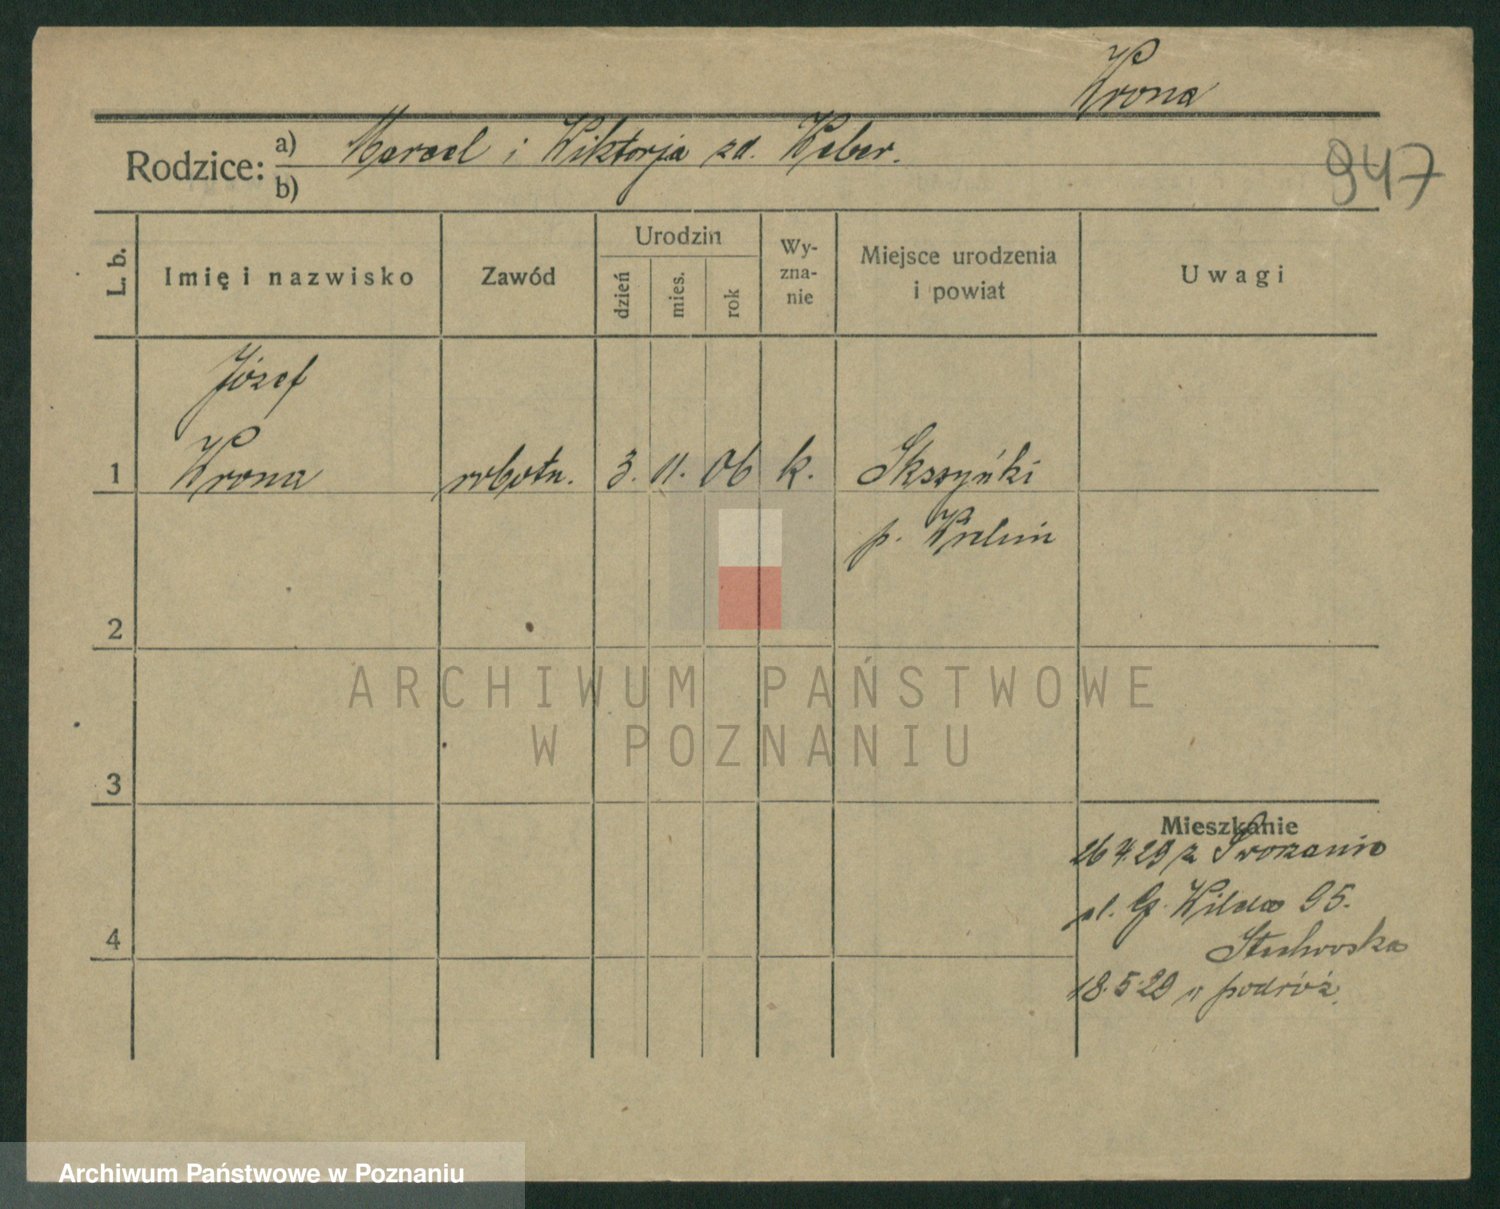 Wrona
Rodzice: a) Marcel i Wiktorja zd. Weber.
b)
947
L. b. Imię i nazwisko Zawód Urodzin dzień mies. rok Wyznanie Miejsce urodzenia i powiat Uwagi
Józef
1 Wrona robotn. 3. 11. 06 k. Skszyńki
p. Wieluń
2
ARCHIWUM PAŃSTWOWE
W POZNANIU
3
Mieszkanie
26 4 29 z
G. Wilda 95.
4
18.5.29 w podróż.
Archiwum Państwowe w Poznaniu